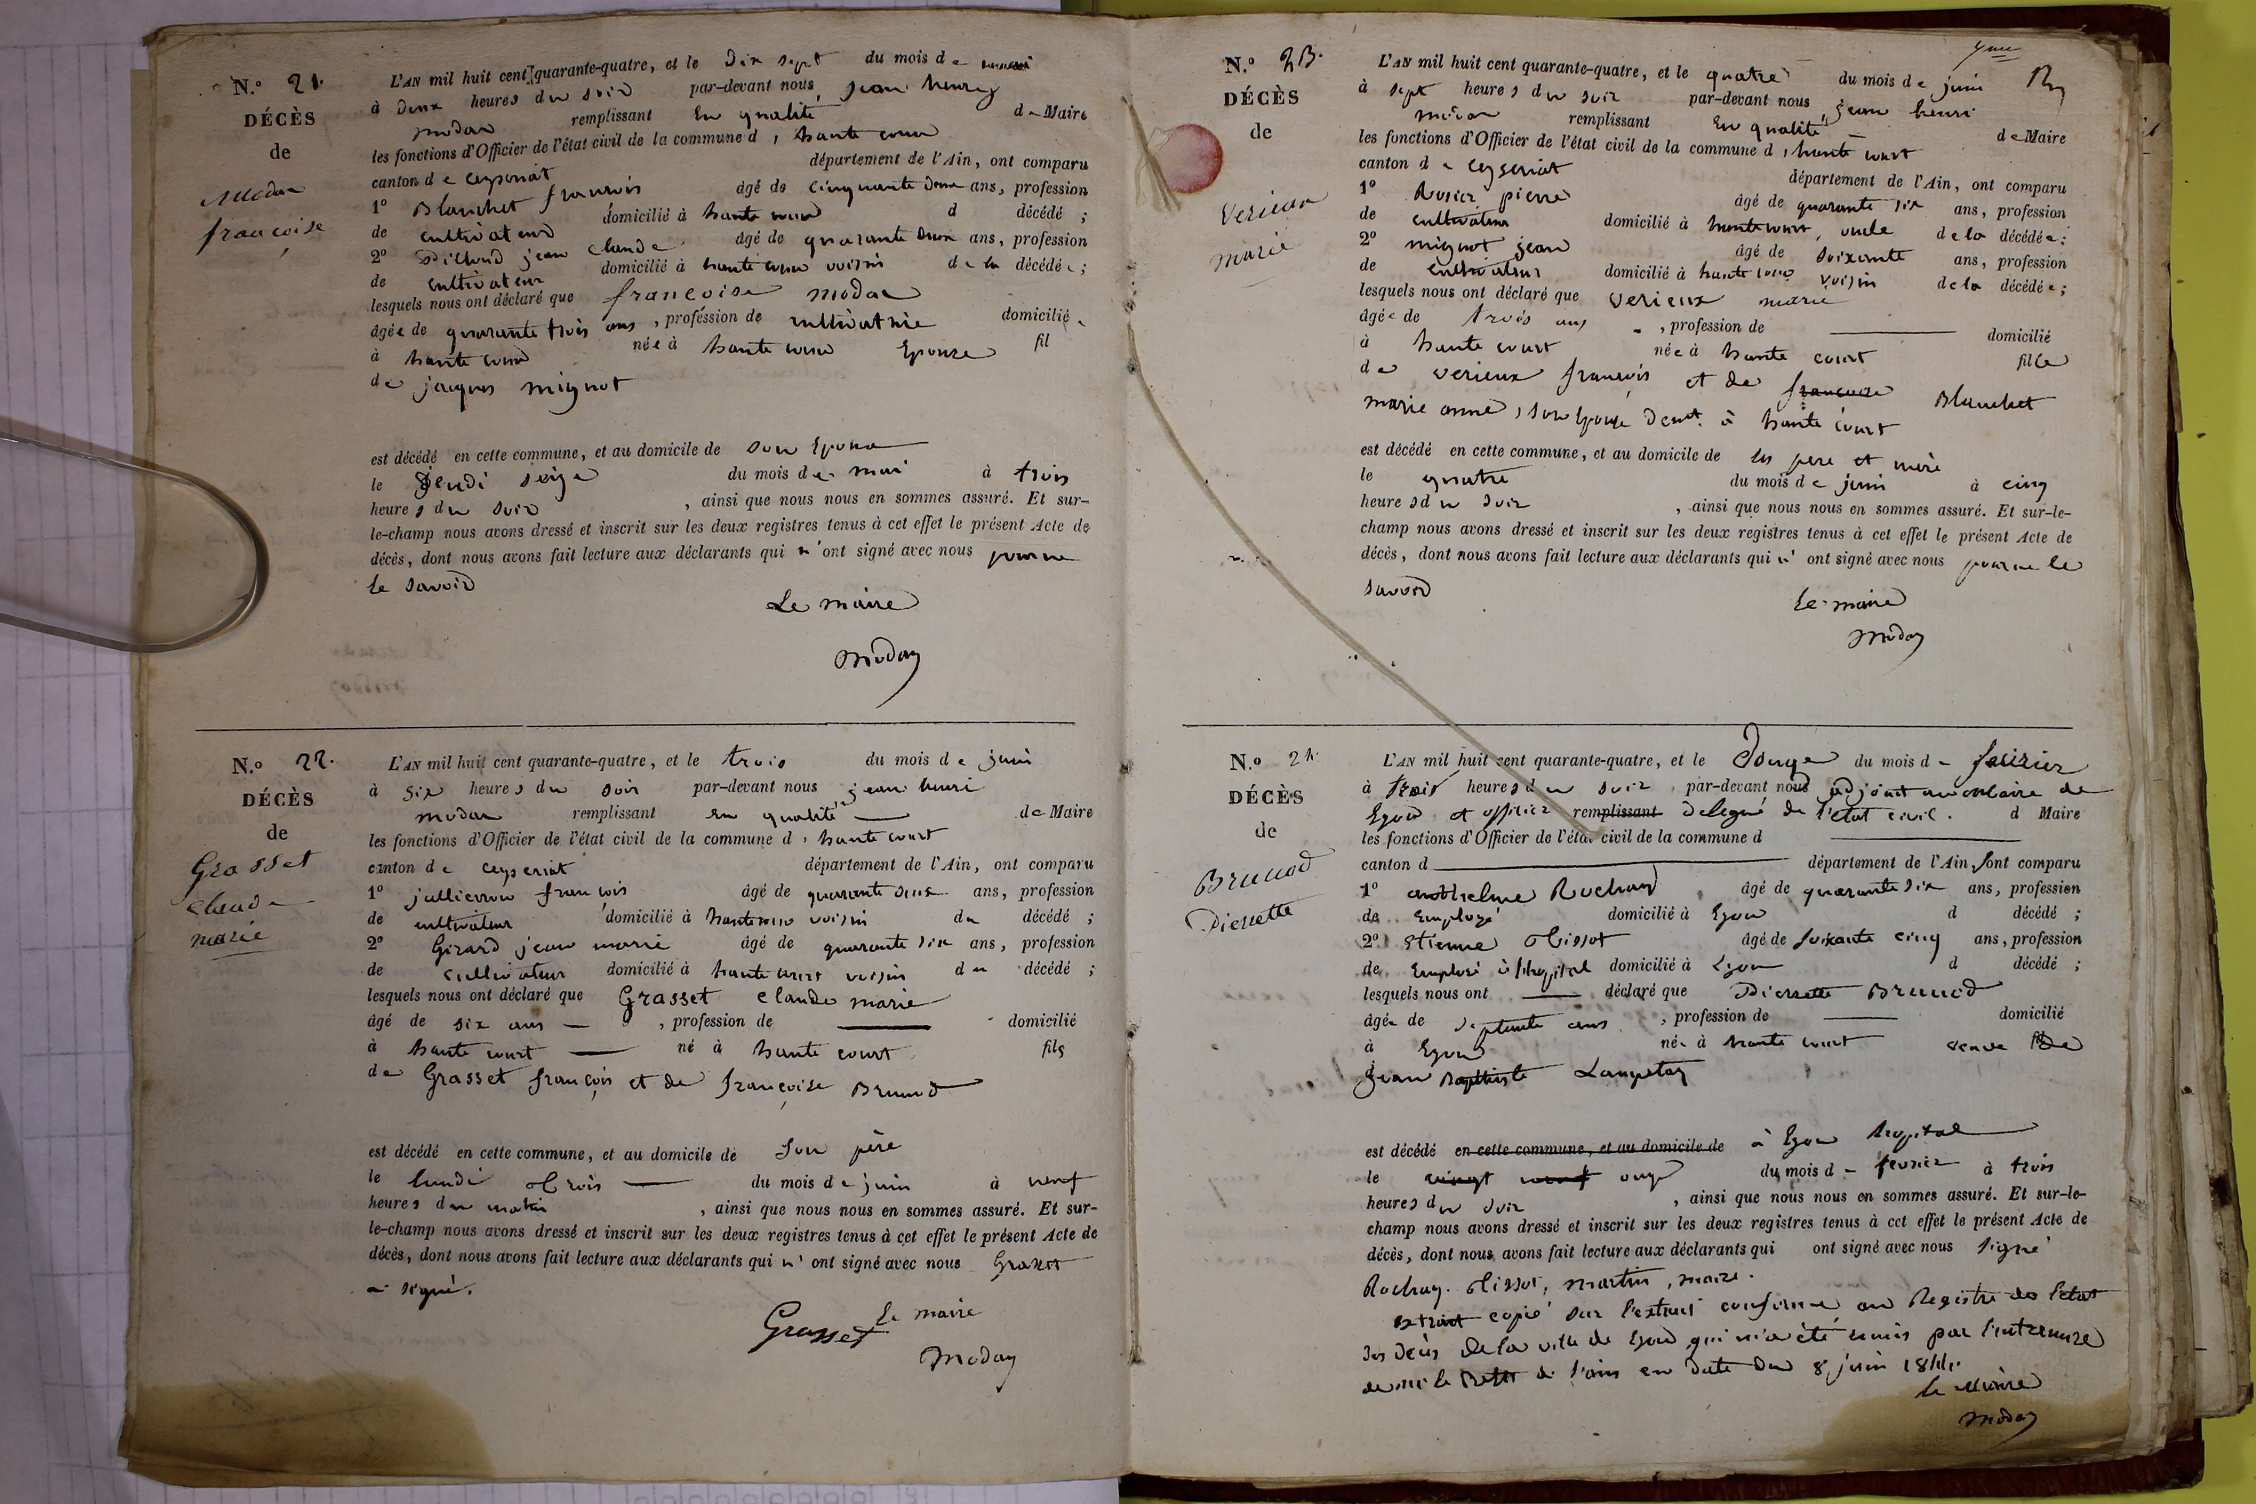 N.º 21.
DÉCÈS
de
Modas
françoise
L'AN mil huit cent quarante-quatre, et le dix sept du mois de mai
à deux heures du soir par-devant nous jean henry
modas remplissant en qualité de Maire
les fonctions d'Officier de l'état civil de la commune d, hautecour
canton de ceyseriat département de l'Ain, ont comparu
1º Blanchet françois âgé de cinquante deux ans, profession
de cultivateur domicilié à hautecour d décédé ;
2º jean claude âgé de quarante deux ans, profession
de cultivateur domicilié à hautecour voisin de la décédée ;
lesquels nous ont déclaré que françoise modas
âgée de quarante trois ans, profession de cultivatrice domiciliée
à hautecour née à hautecour Epouse fil
de jacques mignot
est décédé en cette commune, et au domicile de son Epoux
le jeudi seize du mois de mai à trois
heures du soir, ainsi que nous nous en sommes assuré. Et sur-
le-champ nous avons dressé et inscrit sur les deux registres tenus à cet effet le présent Acte de
décès, dont nous avons fait lecture aux déclarants qui n'ont signé avec nous pour ne
le savoir
Le maire
Modas
N.º 22.
DÉCÈS
de
Grasset
claude
marie
L'AN mil huit cent quarante-quatre, et le trois du mois de juin
à six heures du soir par-devant nous jean henri
modas remplissant en qualité de Maire
les fonctions d'Officier de l'état civil de la commune d, hautecourt
canton de ceyseriat département de l'Ain, ont comparu
1º jullierron françois âgé de quarante deux ans, profession
de cultivateur domicilié à hautecour voisin du décédé ;
2º Girard jean marie âgé de quarante six ans, profession
de cultivateur domicilié à hautecourt voisin du décédé ;
lesquels nous ont déclaré que Grasset claude marie
âgé de six ans, profession de domicilié
à haute court né à haute court fils
de Grasset françois et de françoise Brunod
est décédé en cette commune, et au domicile de son père
le lundi trois du mois de juin à neuf
heures du matin, ainsi que nous nous en sommes assuré. Et sur-
le-champ nous avons dressé et inscrit sur les deux registres tenus à cet effet le présent Acte de
décès, dont nous avons fait lecture aux déclarants qui n'ont signé avec nous Grasset
a signé.
Le maire
Grasset
Modas
N.º 23.
DÉCÈS
de
Verieux
marie
L'AN mil huit cent quarante-quatre, et le quatre du mois de juin
à sept heures du soir par-devant nous jean henri
modas remplissant en qualité de Maire
les fonctions d'Officier de l'état civil de la commune d, haute court
canton de ceyseriat département de l'Ain, ont comparu
1º Rosier pierre âgé de quarante six ans, profession
de cultivateur domicilié à hautecourt, oncle de la décédée ;
2º mignot jean âgé de soixante ans, profession
de cultivateur domicilié à hautecour voisin de la décédée ;
lesquels nous ont déclaré que verieux marie
âgée de trois ans, profession de domicilié
à haute court née à haute court fille
de verieux françois et de françoise Blanchet
marie anne, son Epouse demt. à haute court
est décédé en cette commune, et au domicile de ses pere et mère
le quatre du mois de juin à cinq
heures du soir, ainsi que nous nous en sommes assuré. Et sur-le-
champ nous avons dressé et inscrit sur les deux registres tenus à cet effet le présent Acte de
décès, dont nous avons fait lecture aux déclarants qui n'ont signé avec nous pour ne le
savoir
Le maire
Modas
N.º 24.
DÉCÈS
de
Brunod
Pierrette
L'AN mil huit cent quarante-quatre, et le Douze du mois de février
à trois heures du soir, par-devant nous adjoint au maire de
Lyon et officier remplissant delegué de l'etat civil. d Maire
les fonctions d'Officier de l'état civil de la commune d
canton d département de l'Ain, sont comparu
1º anthelme Rochay âgé de quarante six ans, profession
de Employé domicilié à Lyon d décédé ;
2º Etienne Tissot âgé de soixante cinq ans, profession
de Employé à l'hopital domicilié à Lyon d décédé ;
lesquels nous ont déclaré que Pierrette Brunod
âgée de septante ans, profession de domicilié
à Lyon née à haute court veuve de
jean Baptiste
est décédé en cette commune, et au domicile de à Lyon hopital
le vingt neuf onze du mois de fevrier à trois
heures du soir, ainsi que nous nous en sommes assuré. Et sur-le-
champ nous avons dressé et inscrit sur les deux registres tenus à cet effet le présent Acte de
décès, dont nous avons fait lecture aux déclarants qui ont signé avec nous signé
Rochay. Tissot, martin, maire.
extrait copié sur l'extrait conforme au Registre de l'etat
des décès de la ville de Lyon qui m'a été remis par l'entremise
de mr le Préfet de l'ain en date du 8 juin 1844.
le Maire
Modas